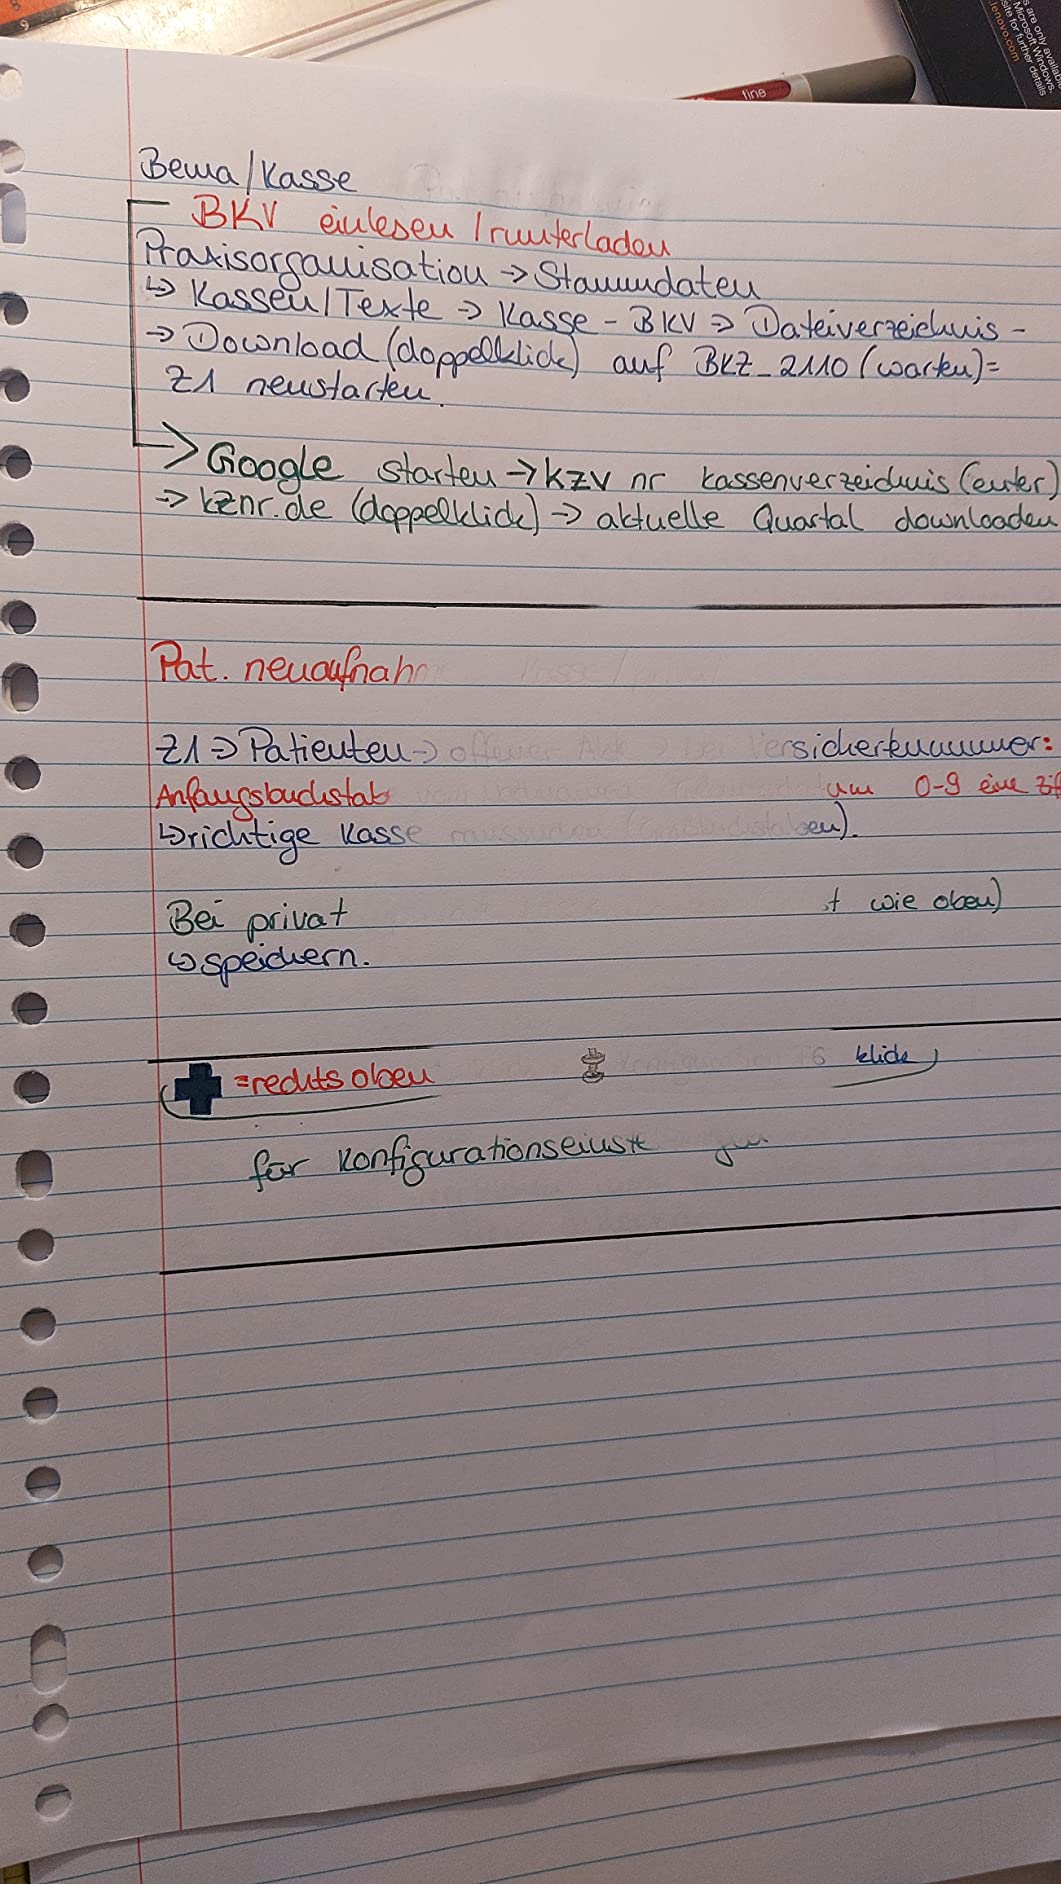 s are only availab
Microsoft Windows.
site for further details
lenovo.com
fine
8
9
Bema/Kasse
BKV einlesen / runterladen
Praxisorganisation → Stammdaten
↳ Kassen/Texte → Kasse - BKV ⇒ Dateiverzeichnis -
→ Download (doppelklick) auf BKZ_2110 (warten) =
Z1 neustarten.
Google starten → KZV nr kassenverzeichnis (enter)
→ kznr.de (doppelklick) → aktuelle Quartal downloaden
Pat. neuaufnah
Z1 ⇒ Patienten → offener → bei Versichertennummer:
Anfangsbuchstab um 0-9 eine Zif
↳ richtige Kasse aben).
Bei privat wie oben)
↳ speichern.
= rechts oben 6 klick
für Konfigurationseinst